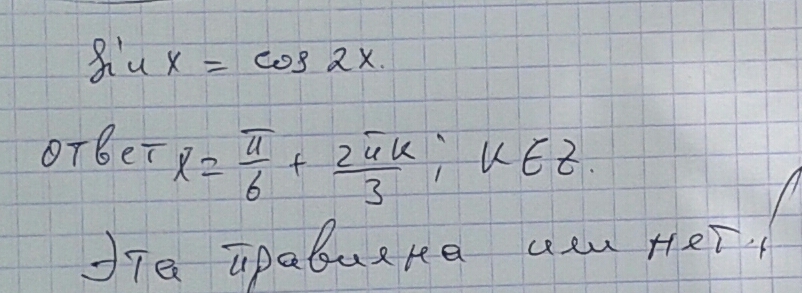 sin x = cos 2x.
ответ x = π/6 + 2πk/3; k ∈ Z.
Эта правилна или нет.